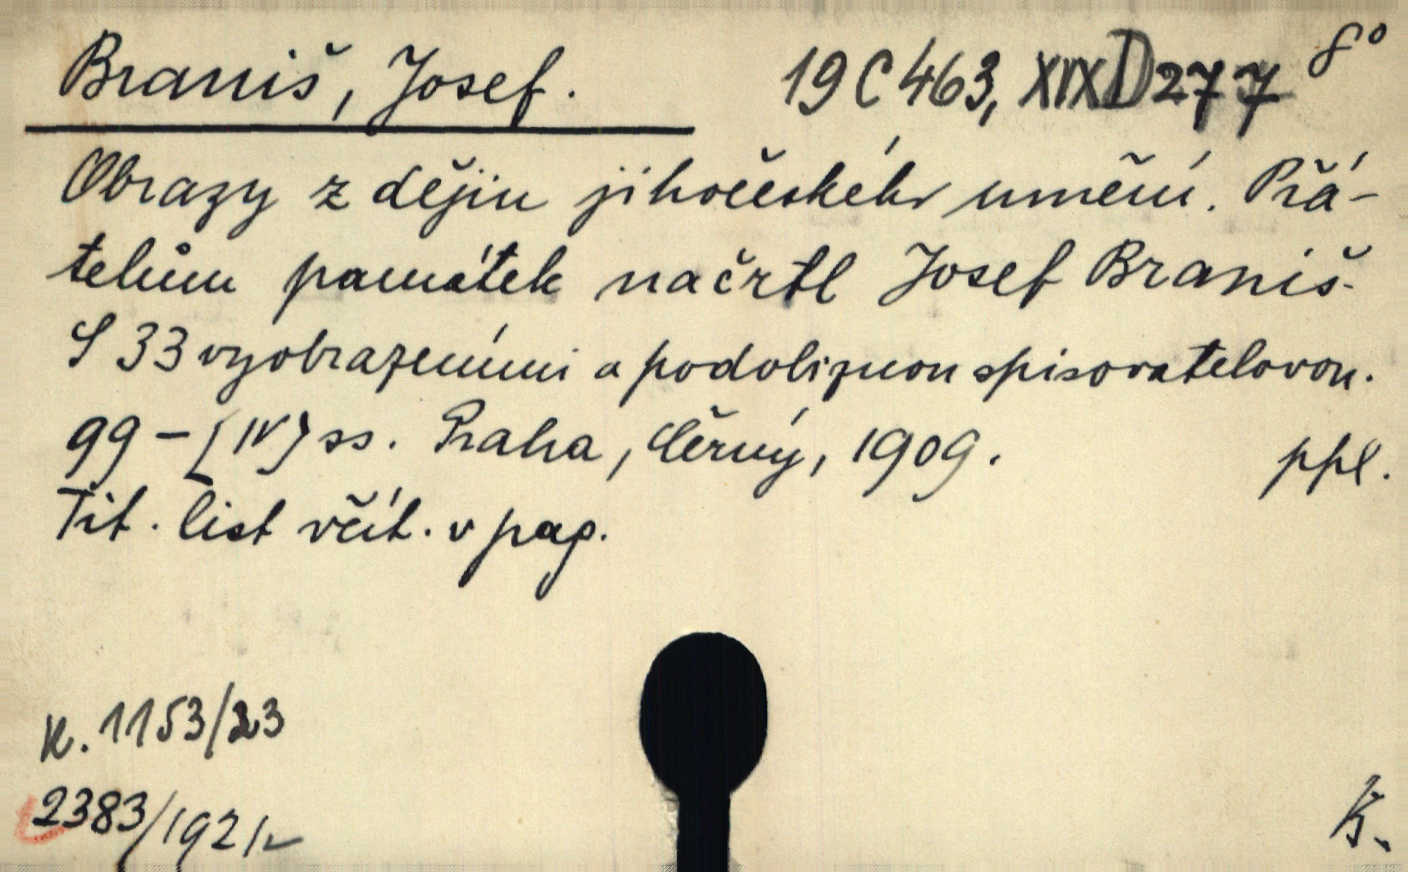 Braniš, Josef. 19 C 463, XIX D 277 8°
Obrazy z dějin jihočeského umění. Přá-
telům památek načrtl Josef Braniš.
S 33 vyobrazeními a podobiznou spisovatelovou.
99 - [IV] ss. Praha, Černý, 1909. ppl.
Tit. list včít. v pag.
K. 1153/23
2383/1921 K.